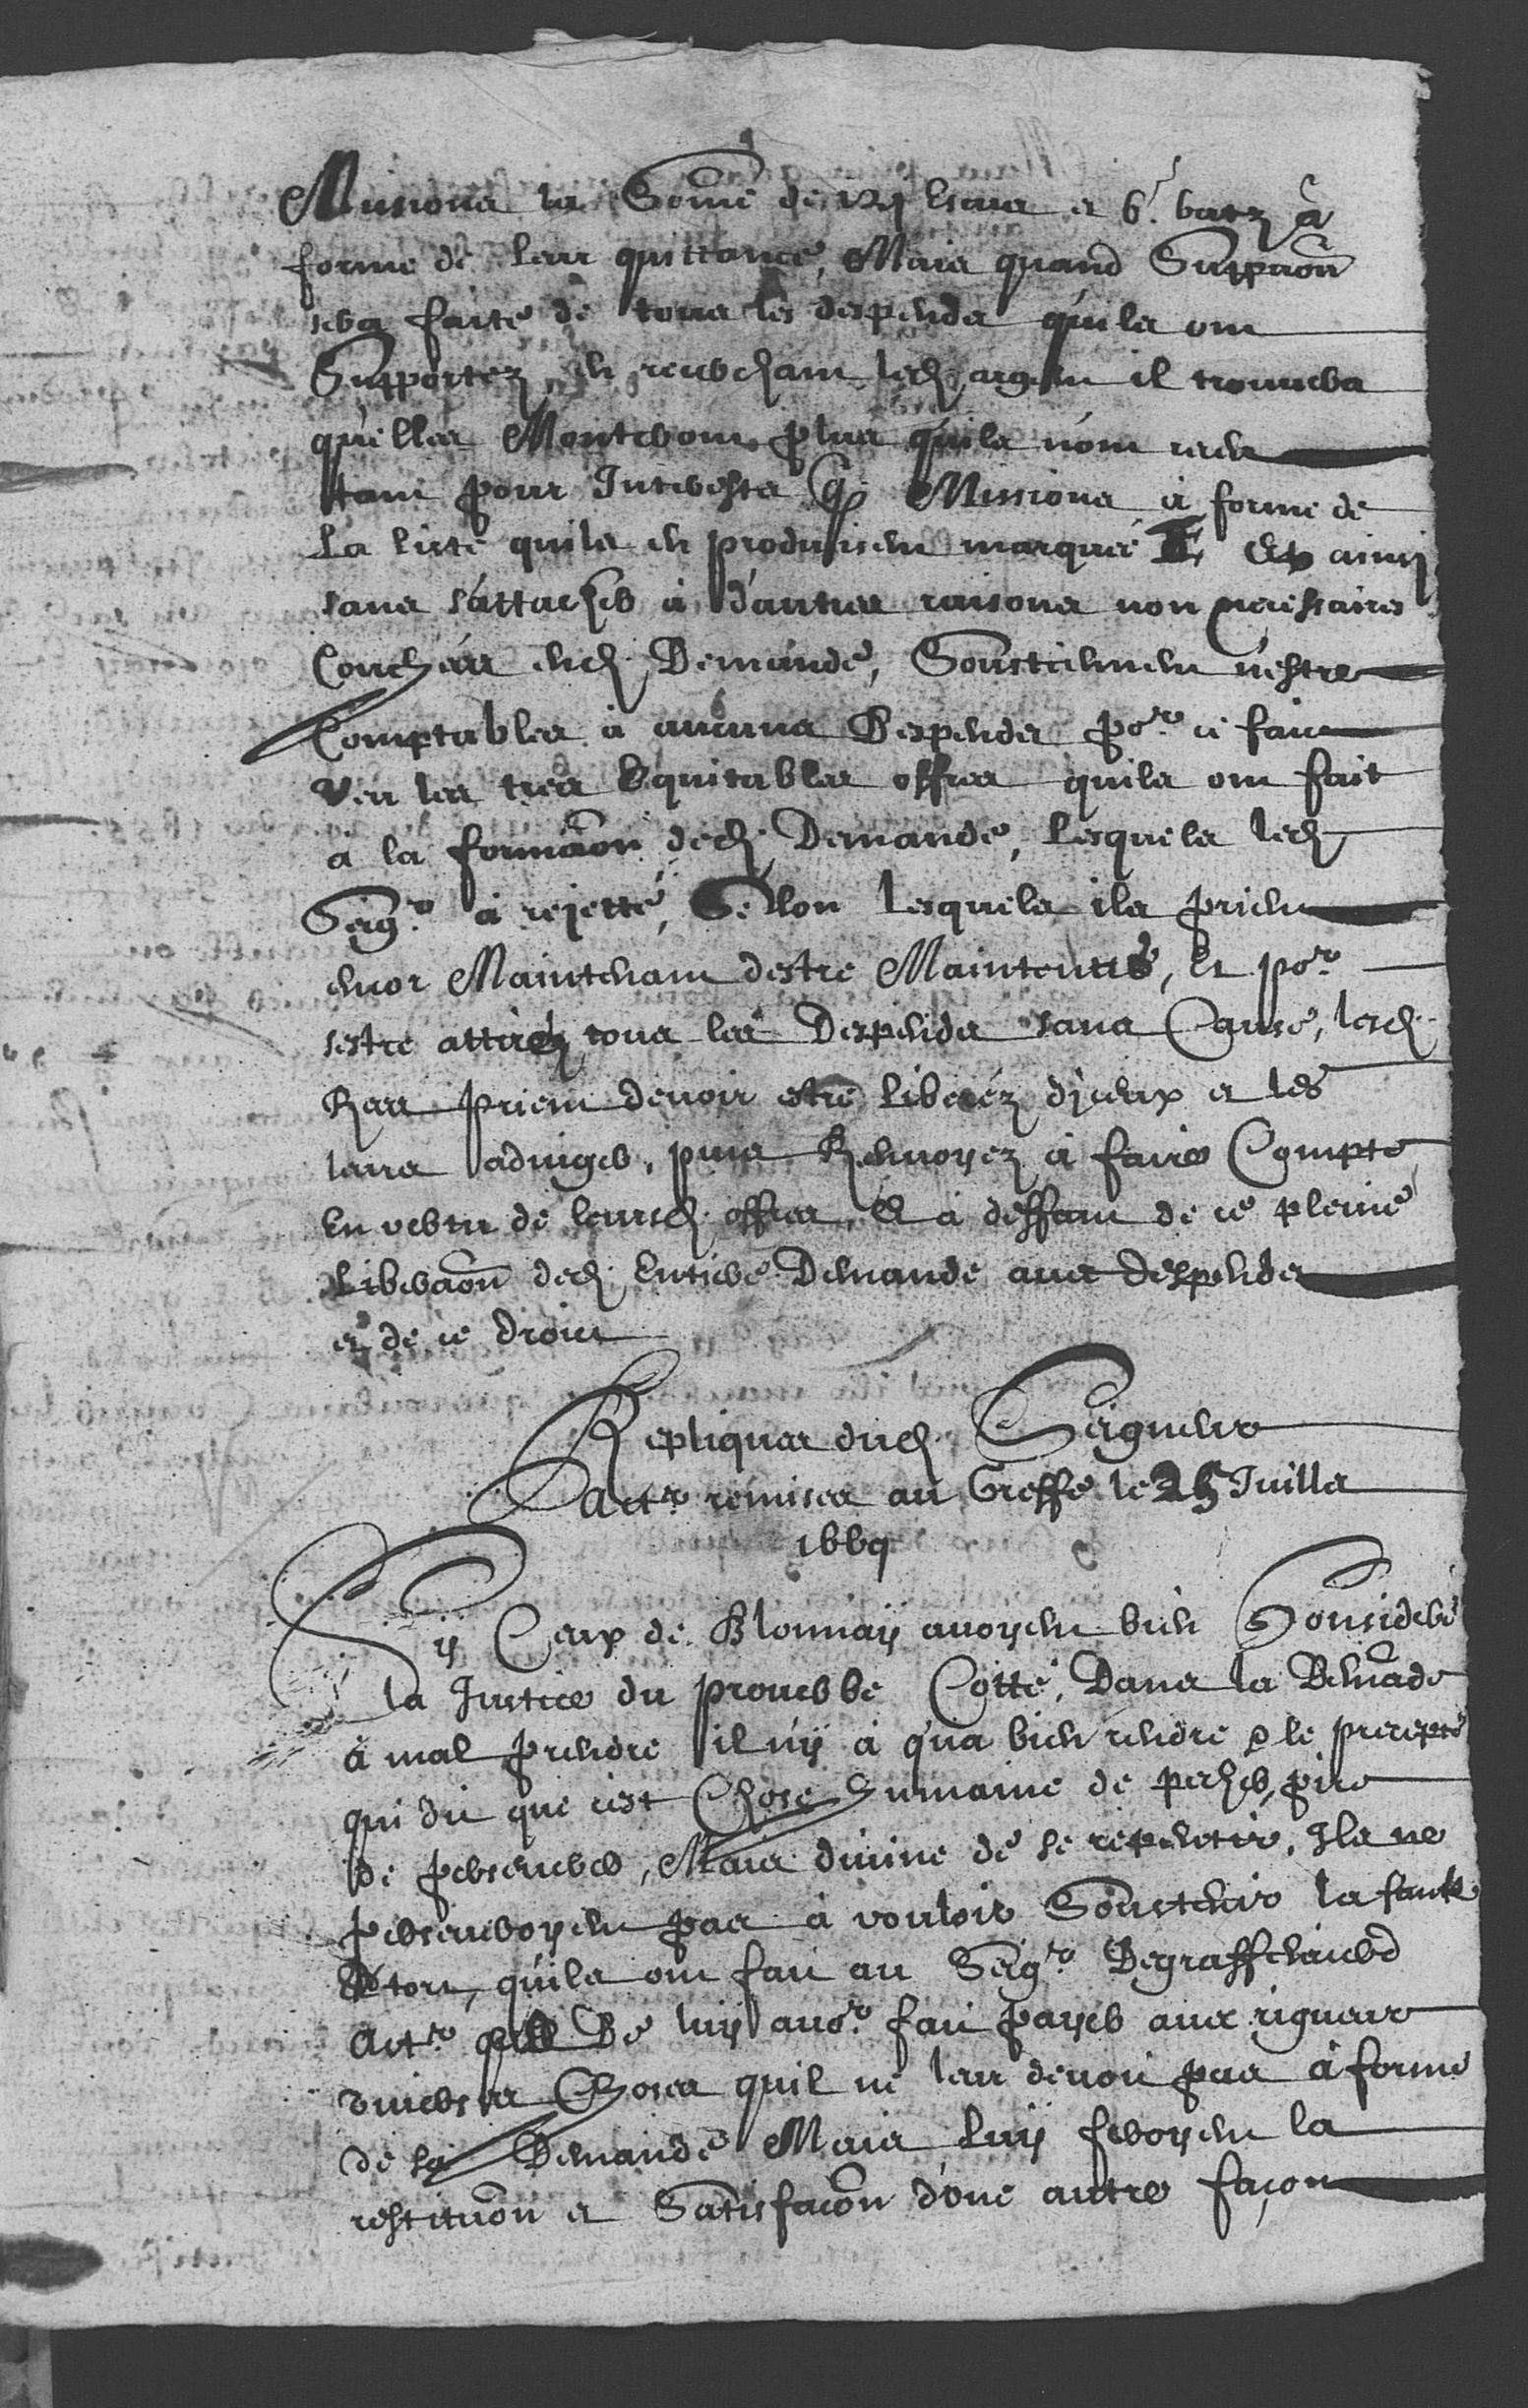 Missions la Some de Escus et 6. batz à
forme de leur quittance, Mais quand Supputaon
sera faite de tous les despends quils ont
Supportez en recerchant led. argent il trouuera
quelles Monteront plus quils n'ont receu
tant pour Interests q. Missions à forme de
La liste quils en produisent marquée E Et ainsi
sans s'attacher à d'autres raisons non necessaires
Couchées end. Demande, Soustiennent nestre
Comptables à aucuns Despends por. ce faict
Veu les tres Equitables offres quils ont fait
à la formaon ded. Demande, Lesquels led.
Seigr. à rejetté, Sellon lesquels ils prient
encor Maintenant destre Maintenus, et por.
sestre attirez tous les Despends sans Cause, lesd.
Rees prient deuoir estre Liberéz dyceux et les
leurs adiuger, puis Renuoyez à faire Compte
En vertu de leursd. offres, Et à deffaut de ce pleine
Liberaon ded. Entiere Demande auec despends
et de ce droict
Repliques dud. Seigneur
Actr. remises au Greffe le 25 Juillet
1669
Sÿ Ceux de Blonnaÿ auoyent bien Consideré
la Justice du prouerbe Cotté, Dans la Demade
à mal prendre il nÿ à qua bien rendre & le precepte
qui dit que c'est Chose humaine de pecher, pire
de perseuerer, Mais diuine de se repentir, Ils ne
perseueroyent pas à vouloir Soustenir la faute
Et tort, quils ont fait au Seigr. Degraffenried
Actr. De luÿ auor. fait payer auec rigueur
diuerses Choses quil ne leur deuoit pas à forme
de sa Demande Mais Luÿ feroyent la
restituon et Satisfacon d'une autre façon